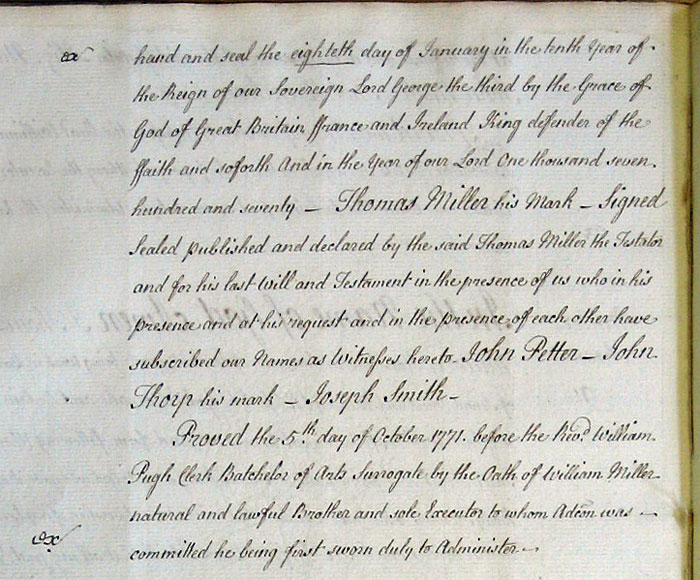 ex hand and seal the eighteth day of January in the tenth Year of
the Reign of our Sovereign Lord George the third by the Grace of
God of Great Britain ffrance and Ireland King defender of the
ffaith and soforth And in the Year of our Lord One thousand seven
hundred and seventy — Thomas Miller his Mark — Signed
Sealed published and declared by the said Thomas Miller the Testator
and for his last Will and Testament in the presence of us who in his
presence and at his request and in the presence of each other have
subscribed our Names as Witnesses hereto — John Petter — John
Thorp his mark — Joseph Smith —
Proved the 5th day of October 1771. before the Revd. William
Pugh Clerk Batchelor of Arts Surrogate by the Oath of William Miller
natural and lawful Brother and sole Executor to whom Adcon was —
ex committed he being first sworn duly to Administer —